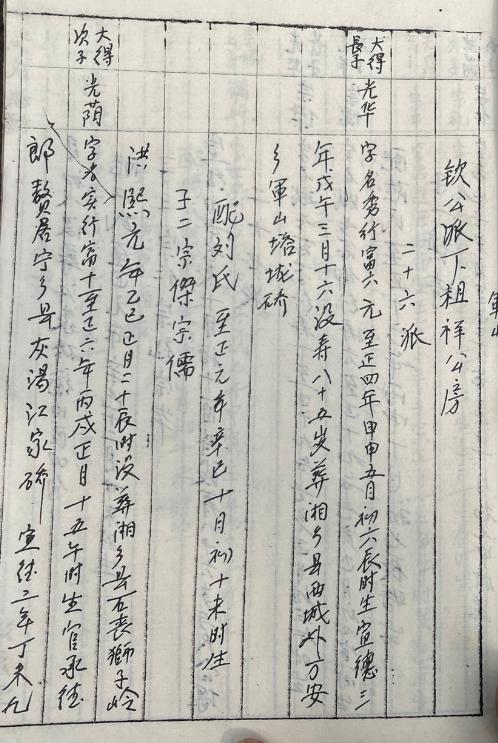 軍山
钦公派下粗祥公房
二十六派
大得長子 光华 字名秀行富六 元至正四年甲申五月初六辰时生宣德三
年戊午三月十六没寿八十五岁葬湘乡县西城外万安
乡軍山塔坳砳
配刘氏 至正元年辛巳十月初十未时生
子二宗傑宗儒
洪熙元年乙巳正月二十辰时没葬湘乡县石丧獅子岭
大得次子 光荫 字方实行富十一至正六年丙戌正月十五午时生官承德
郎贅居宁乡县灰湯江家砳 宣德二年丁未九